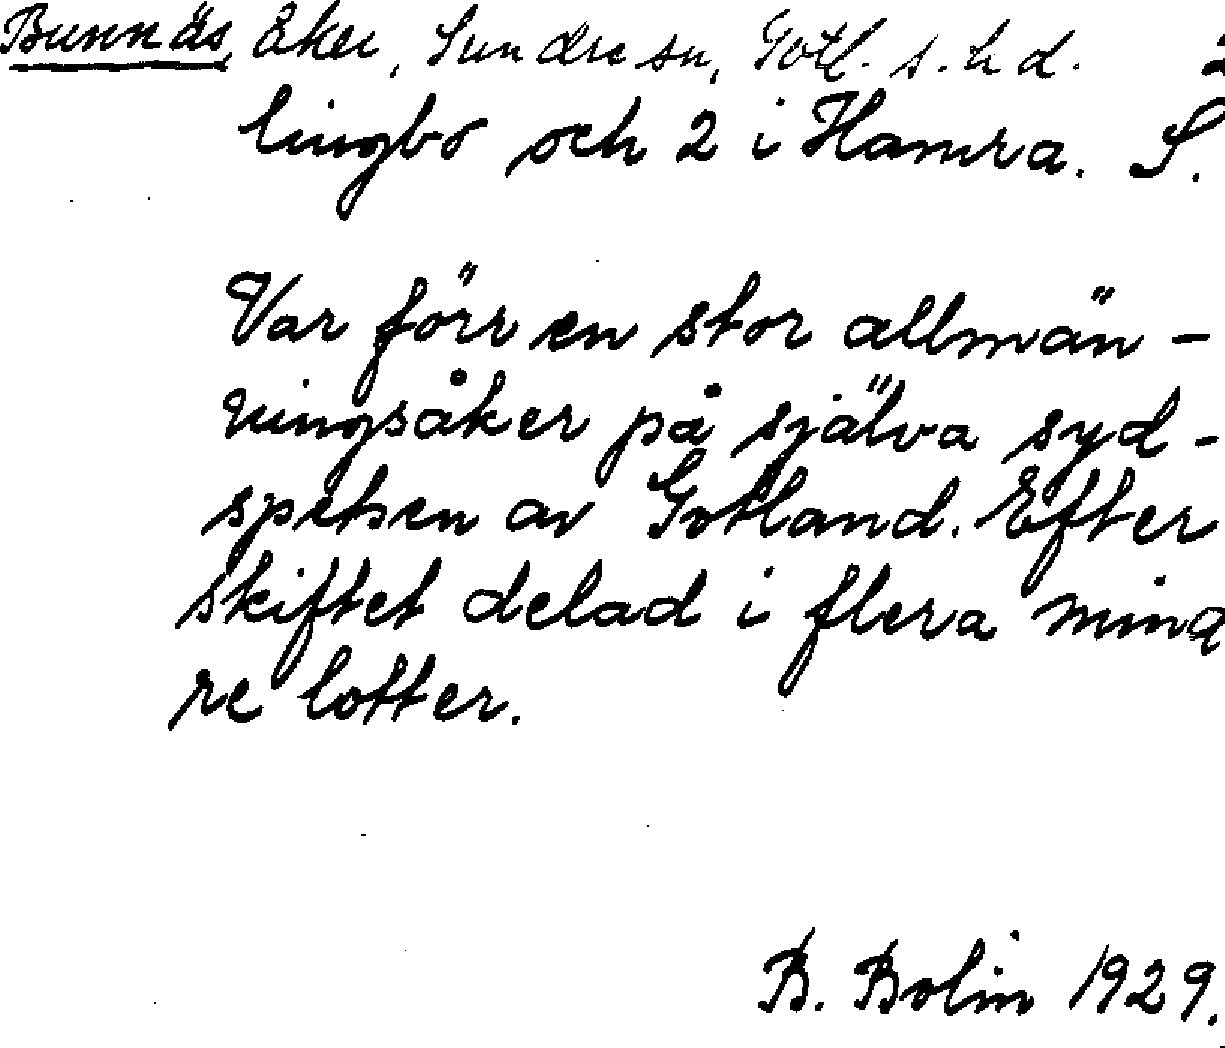 Bunnäs, Åker, Sundre sn, Gotl. s. hd. 2
lingbo och 2 i Hamra. S.
Var förr en stor allmän-
ningsåker på själva syd-
spetsen av Gotland. Efter
skiftet delad i flera mind
re lotter.
B. Bolin 1929.